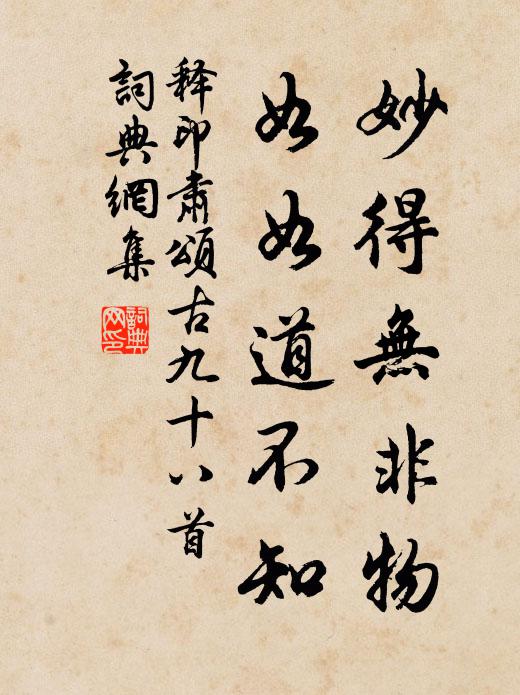 妙得無非物
如如道不知
释印肅頌古九十八首
詞典網集
詞典網印